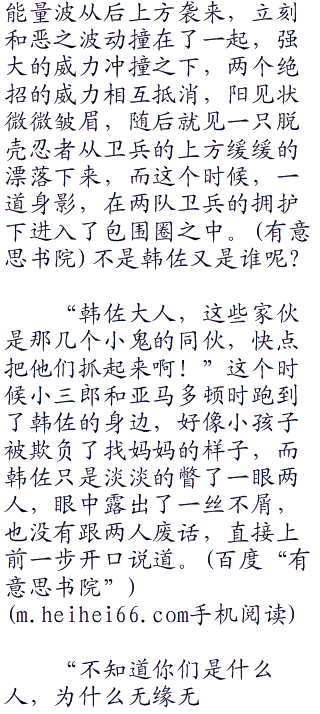 能量波从后上方袭来，立刻
和恶之波动撞在了一起，强
大的威力冲撞之下，两个绝
招的威力相互抵消，阳见状
微微皱眉，随后就见一只脱
壳忍者从卫兵的上方缓缓的
漂落下来，而这个时候，一
道身影，在两队卫兵的拥护
下进入了包围圈之中。(有意
思书院)不是韩佐又是谁呢？
“韩佐大人，这些家伙
是那几个小鬼的同伙，快点
把他们抓起来啊！”这个时
候小三郎和亚马多顿时跑到
了韩佐的身边，好像小孩子
被欺负了找妈妈的样子，而
韩佐只是淡淡的瞥了一眼两
人，眼中露出了一丝不屑，
也没有跟两人废话，直接上
前一步开口说道。(百度“有
意思书院”)
(m.heihei66.com手机阅读)
“不知道你们是什么
人，为什么无缘无